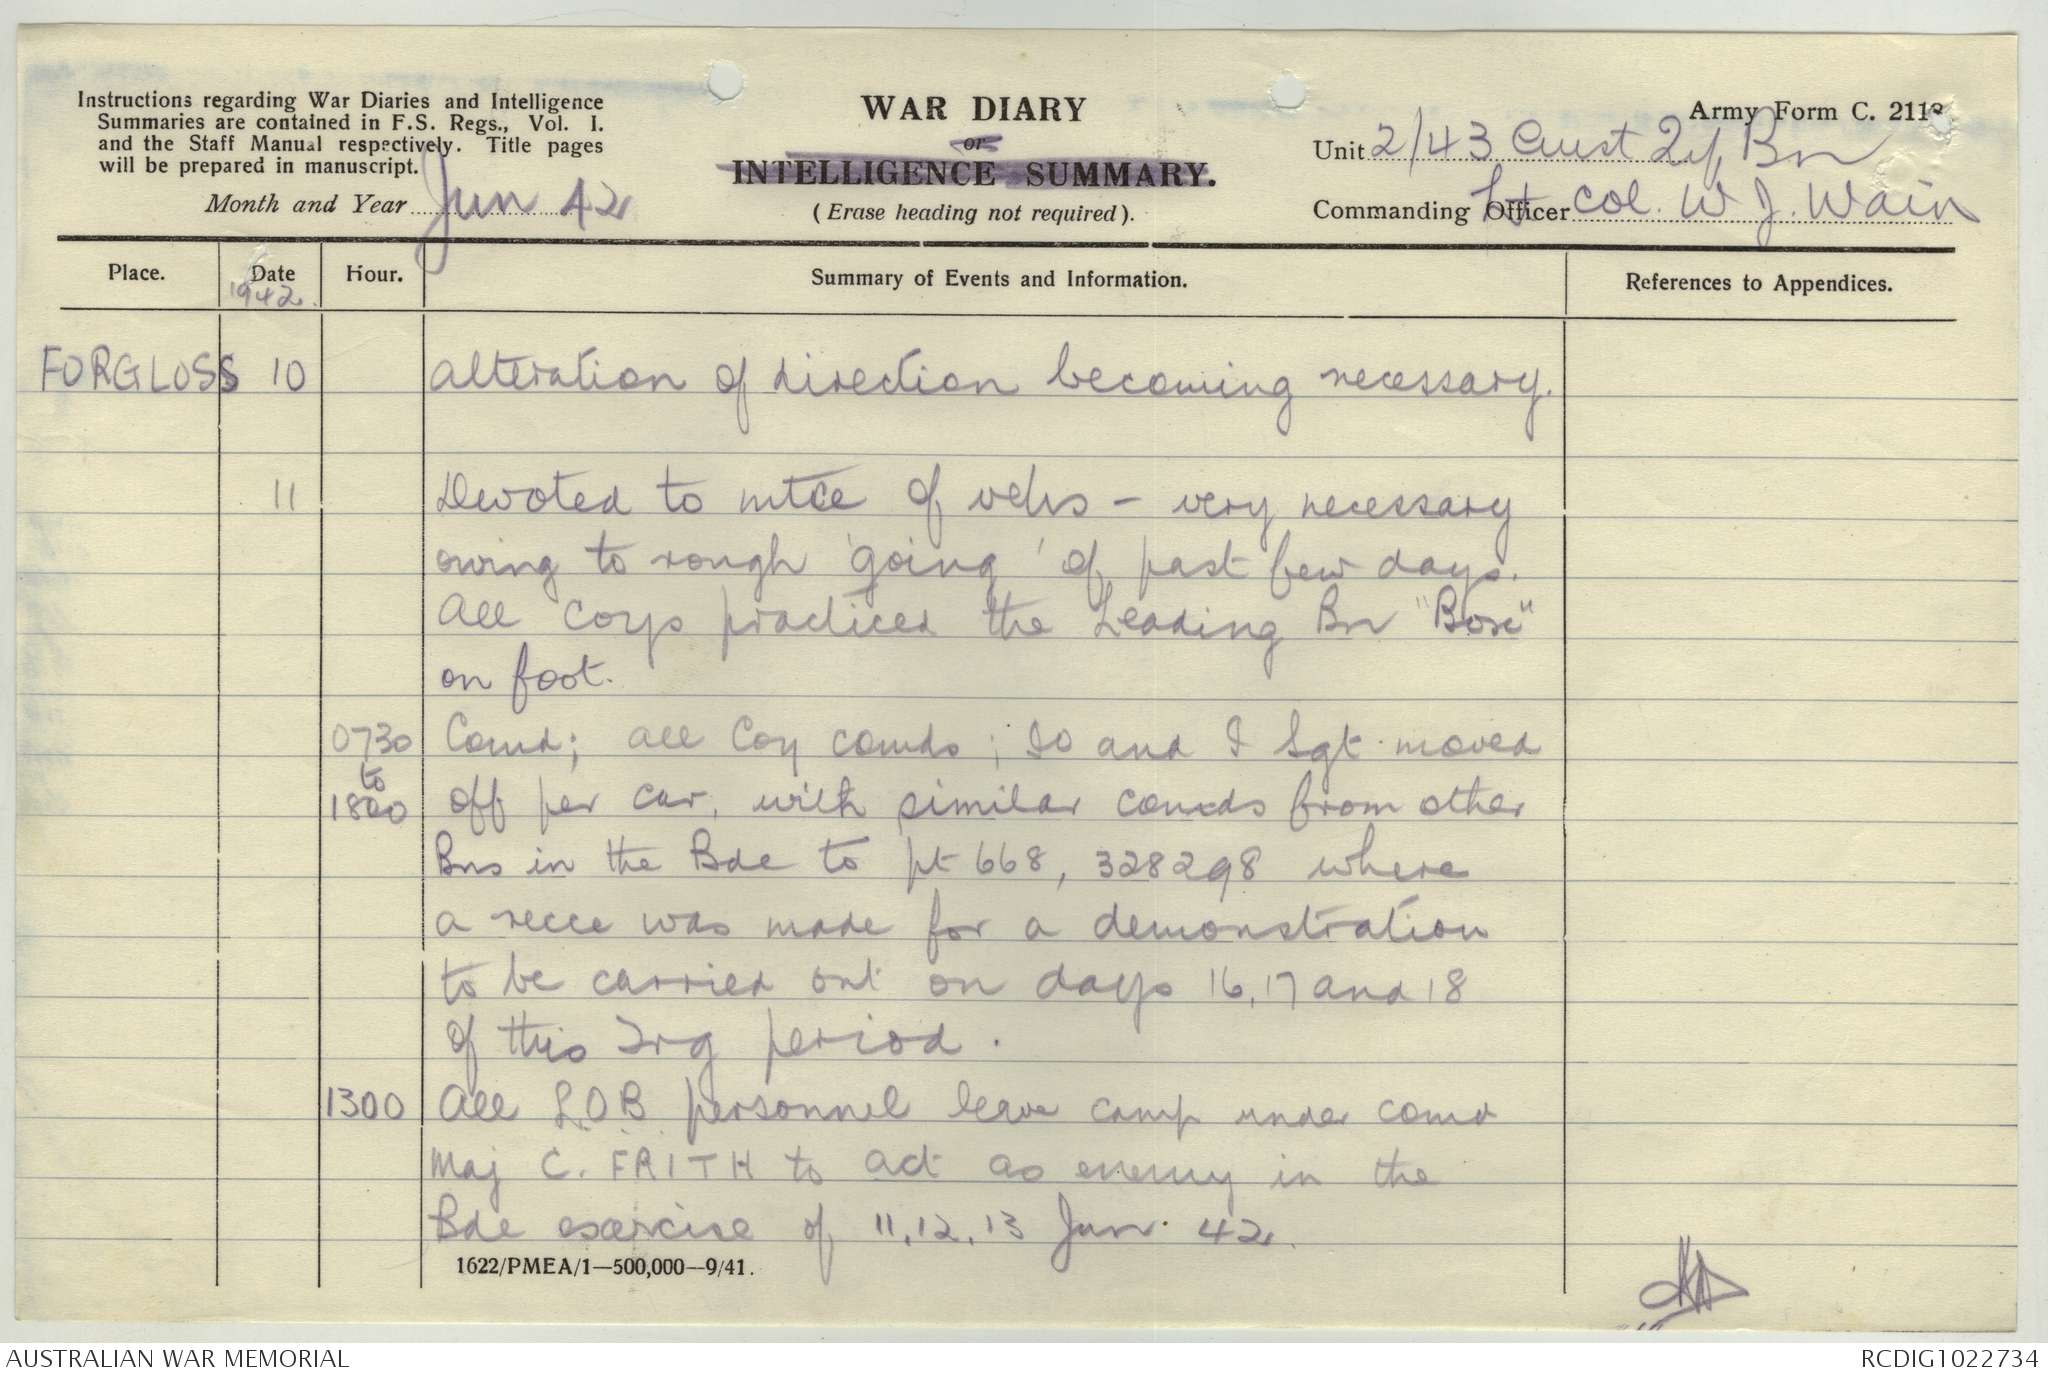 Instructions regarding War Diaries and Intelligence
Summaries are contained in F.S. Regs., Vol. I.
and the Staff Manual respectively. Title pages
will be prepared in manuscript.
Month and Year Jun 42
WAR DIARY
or
INTELLIGENCE SUMMARY.
(Erase heading not required).
Army Form C. 2118
Unit 2/43 Aust Inf Bn
Commanding Officer Lt Col. W J. Wain
Place. Date 1942. Hour. Summary of Events and Information. References to Appendices.
FORGLOSS 10 alteration of direction becoming necessary.
11 Devoted to mtce of vehs – very necessary
owing to rough 'going' of past few days.
All Coys practiced the Leading Bn "Box"
on foot.
0730 Comd; all Coy comds; IO and I Sgt moved
to
1800 off per car, with similar comds from other
Bns in the Bde to pt 668, 328298 where
a recce was made for a demonstration
to be carried out on days 16, 17 and 18
of this Trg period.
1300 All L.O.B personnel leave camp under comd
Maj C. FRITH to act as enemy in the
Bde exercise of 11, 12, 13 Jun 42.
1622/PMEA/1—500,000—9/41.
AUSTRALIAN WAR MEMORIAL
RCDIG1022734